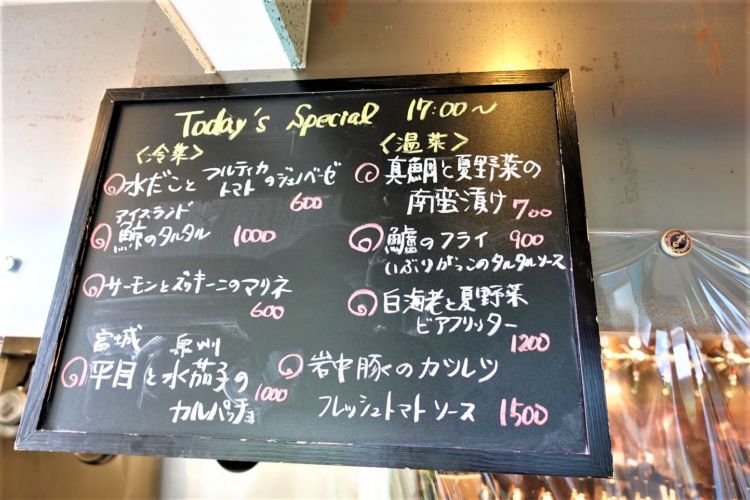 Today's Special 17:00〜
<冷菜>
水だこと フルティカトマトのジェノベーゼ
600
アイスランド
鯨のタルタル 1000
サーモンとズッキーニのマリネ
600
宮城 泉州
平目と水茄子の
カルパッチョ 1000
<温菜>
真鯛と夏野菜の
南蛮漬け 700
鱸のフライ 900
(いぶりがっこのタルタルソース)
白海老と夏野菜
ビアフリッター
1200
岩中豚のカツレツ
フレッシュトマトソース 1500